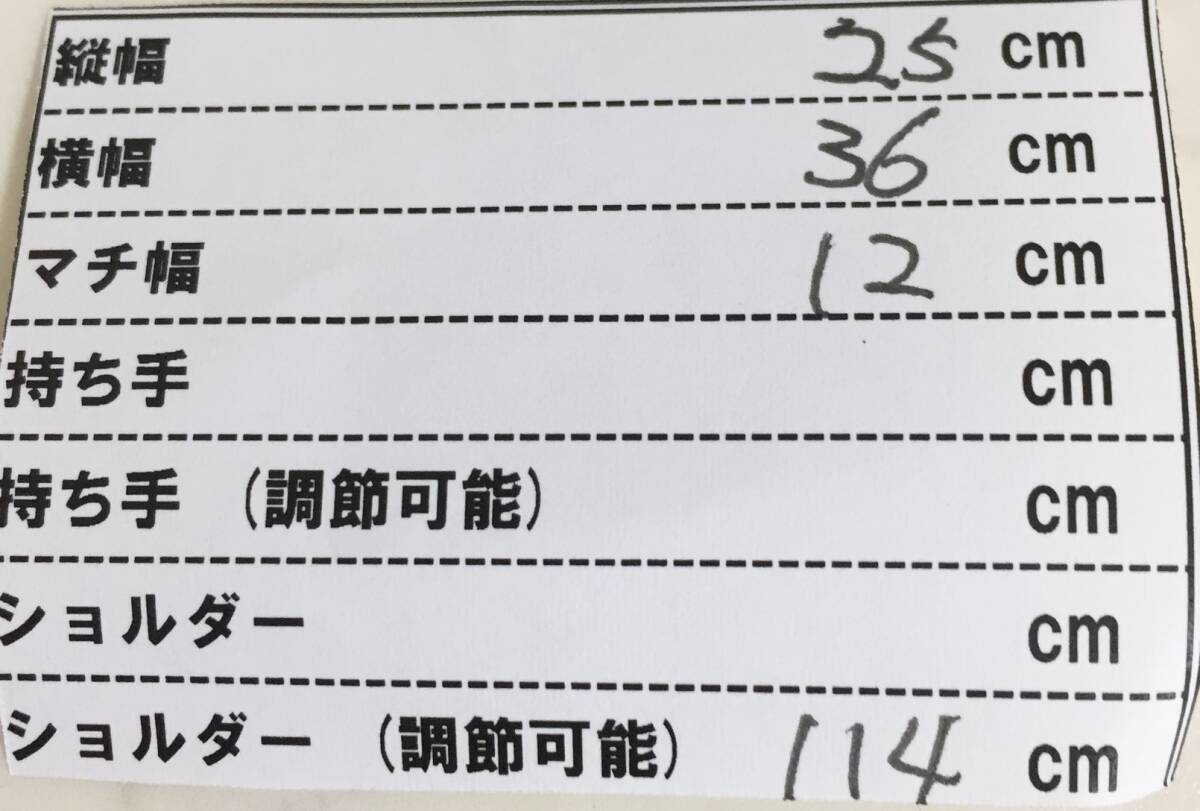 縦幅 25 cm
横幅 36 cm
マチ幅 12 cm
持ち手 cm
持ち手 (調節可能) cm
ショルダー cm
ショルダー (調節可能) 114 cm